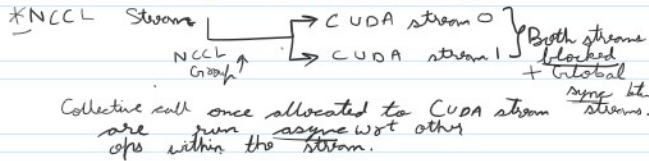 *NCCL Stream → CUDA stream 0 } Both streams
NCCL Group ↑ → CUDA stream 1 blocked
+ Global
sync btw streams.
Collective call once allocated to CUDA stream
are run async wrt other
ops within the stream.